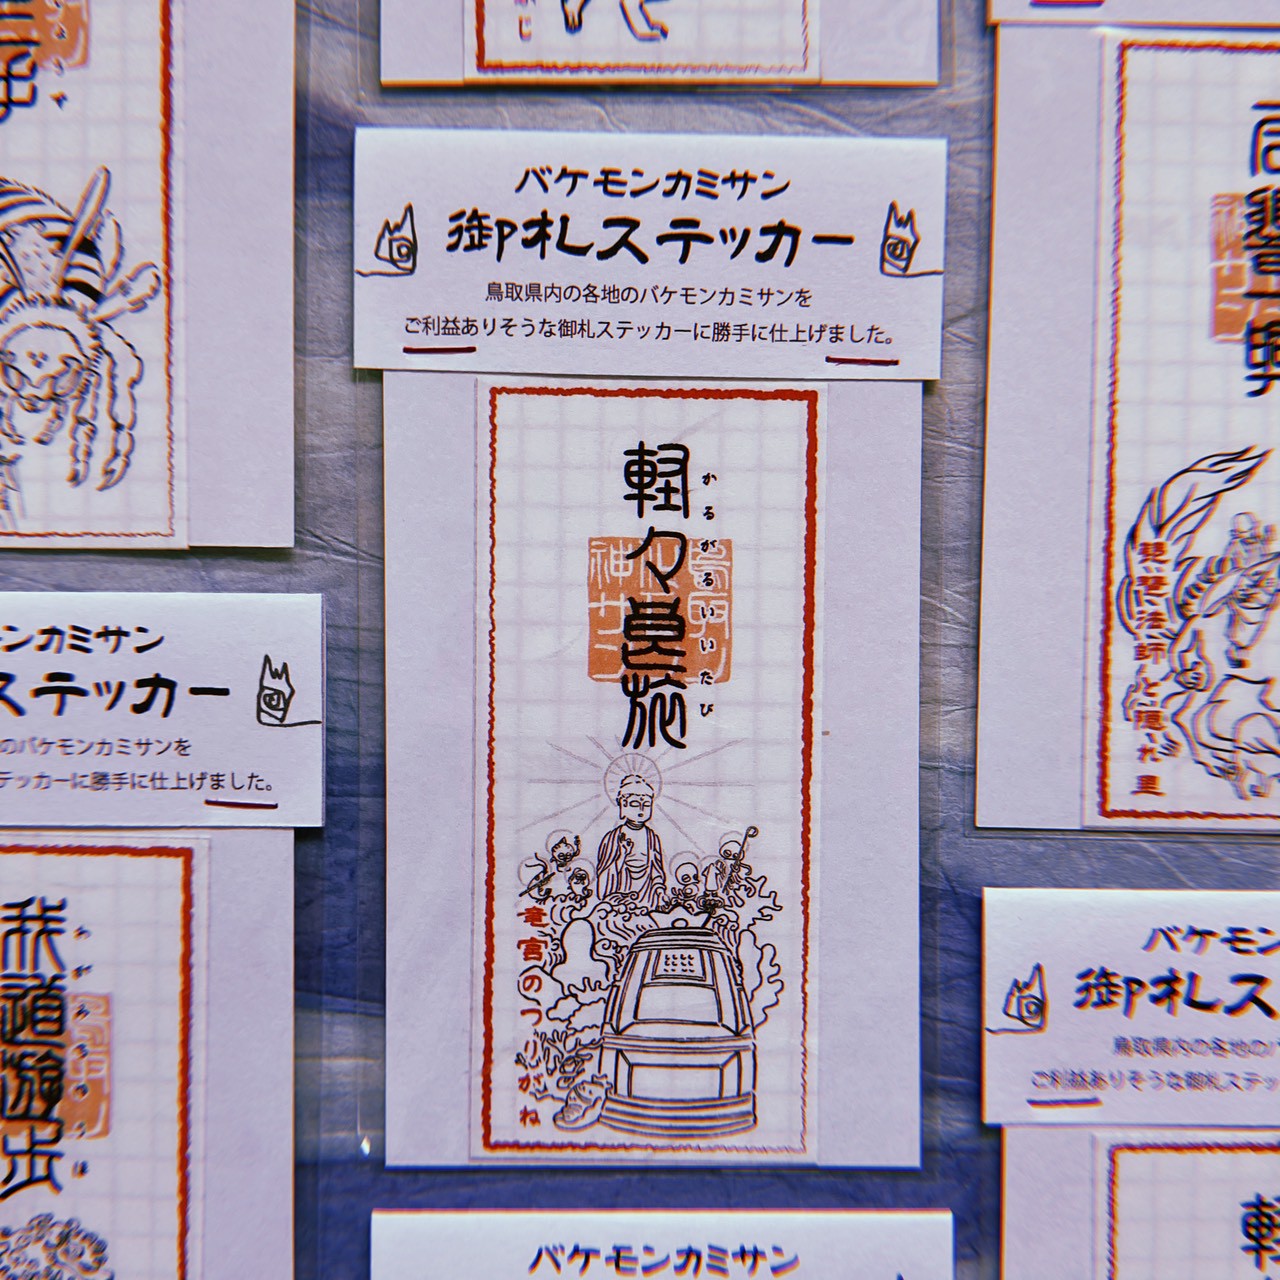 バケモンカミサン
御札ステッカー
鳥取県内の各地のバケモンカミサンを
ご利益ありそうな御札ステッカーに勝手に仕上げました。
軽々良旅
かるがるいいたび
竜宮のつりがね
ンカミサン
ステッカー
のバケモンカミサンを
テッカーに勝手に仕上げました。
我道遊歩
わがみちのうほ
琵琶法師と隠れ里
バケモン
御札ス
鳥取県内の各地の
ご利益ありそうな御札ステッ
軽
バケモンカミサン